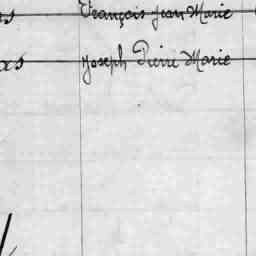 François Jean Marie
Joseph Pierre Marie